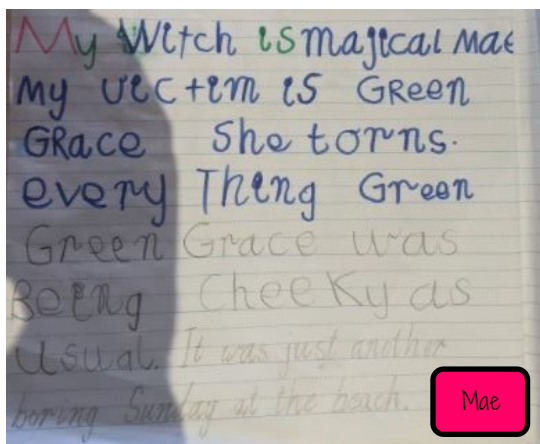 My Witch is majical Mae
My vectem is GReen
GRace She torns.
every Thing Green
Green Grace was
Being CheeKy as
Usual. It was just another
boring Sunday at the beach.
Mae